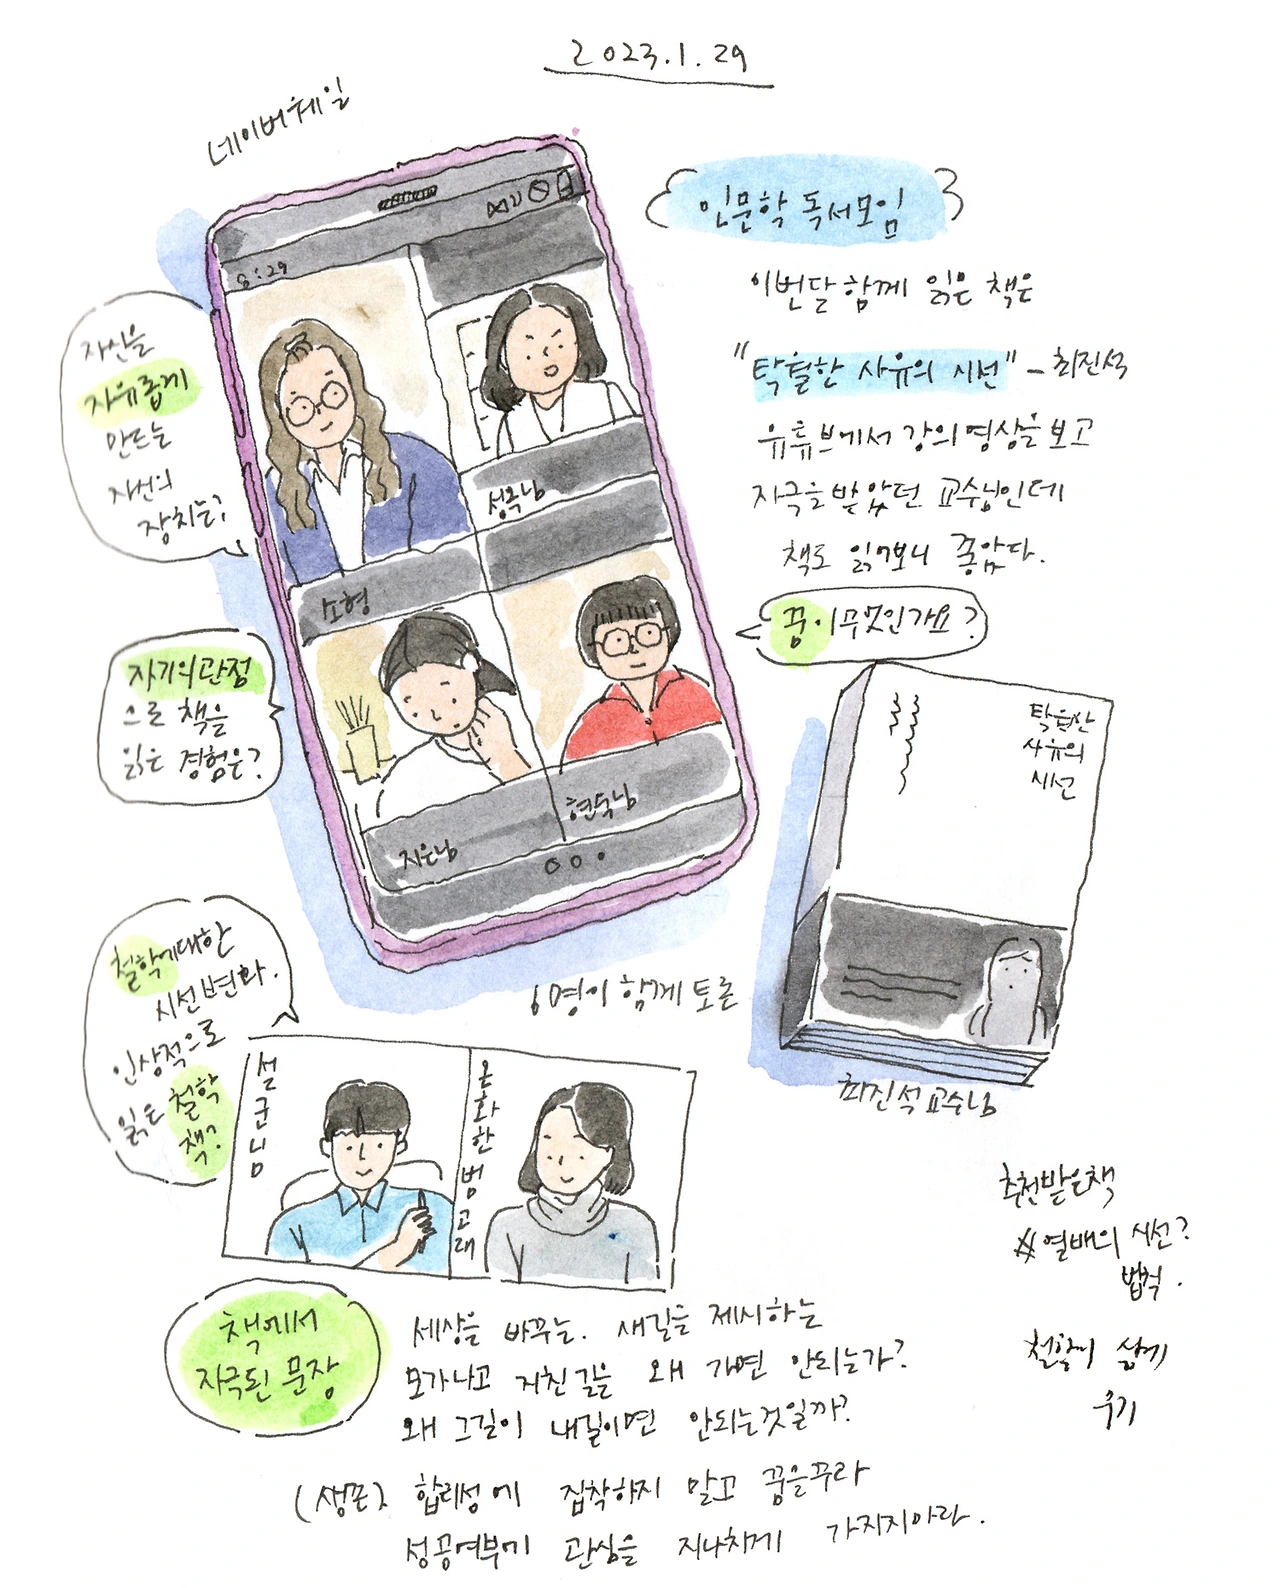 2023.1.29
네이버웨일
인문학 독서모임
이번달 함께 읽은 책은
"탁월한 사유의 시선" - 최진석
유튜브에서 강의영상을 보고
자극을 받았던 교수님인데
책도 읽어보니 좋았다.
8:29
자신을
자유롭게
만드는
자신의
장치는?
성옥님
소형
꿈이 무엇인가요?
자기의관점
으로 책을
읽은 경험은?
탁월한
사유의
시선
현숙님
지은님
철학에대한
시선변화.
인상적으로
읽은 철학
책?
6명이 함께 토론
최진석교수님
설군님
온화한범고래
추천받은책
#열배의 시선?
법칙.
철학이 삶에
책에서
자극된 문장
세상을 바꾸는. 새길을 제시하는
모가나고 거친길을 왜 가면 안되는가?
왜 그길이 내길이면 안되는것일까?
합리성에 집착하지 말고 꿈을꾸라
성공여부에 관심을 지나치게 가지지마라.